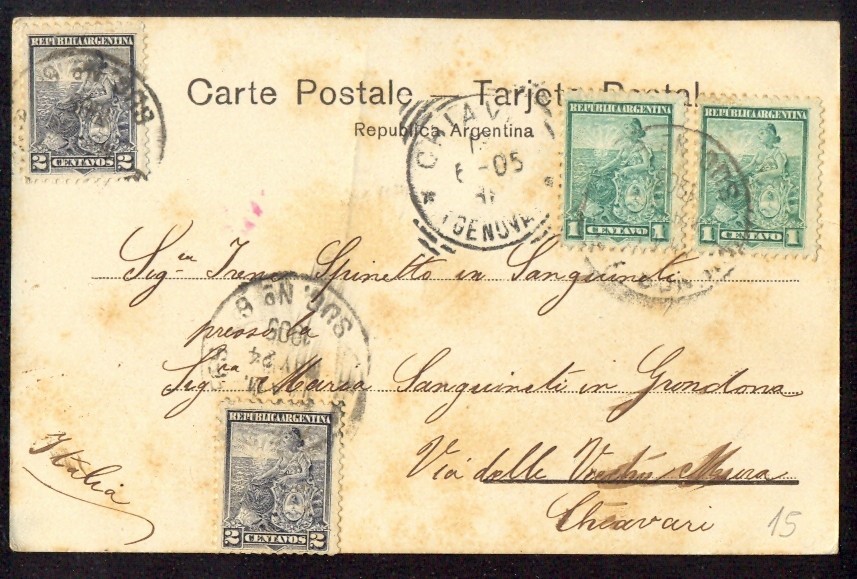 REPUBLICA ARGENTINA
2 CENTAVOS 2
Carte Postale — Tarjeta Postal
Republica Argentina
CHIAVARI
6 - 05
(GENOVA)
REPUBLICA ARGENTINA
1 CENTAVO 1
REPUBLICA ARGENTINA
1 CENTAVO 1
Sig.ra Irene Spinetto in Sanguineti
presso la
Sig.ra Maria Sanguineti in Grondona
Via delle Vecchie Mura
Chiavari
Italia
SUC. Nº 8
1905
24
REPUBLICA ARGENTINA
2 CENTAVOS 2
15